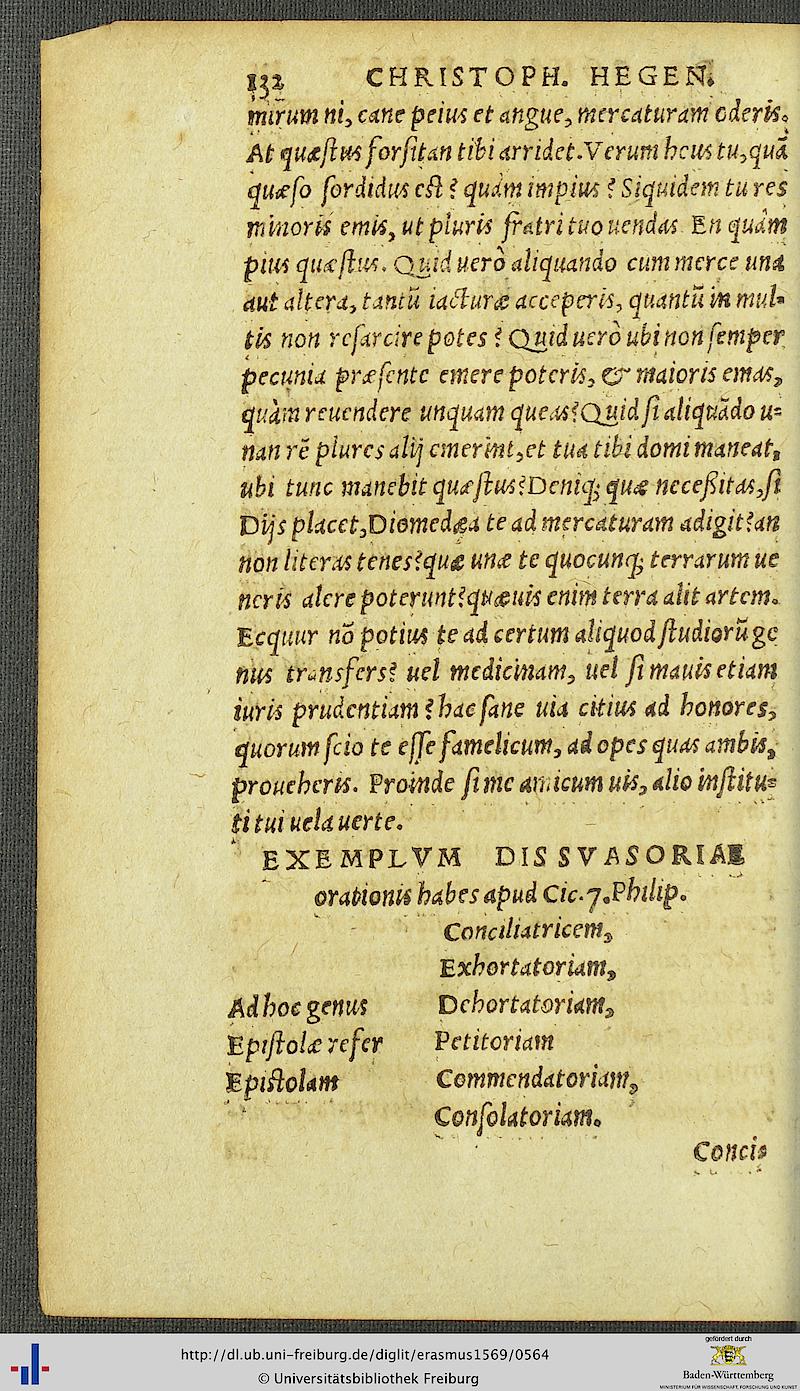 132 CHRISTOPH. HEGEN.
mirum ni, cane peius et angue, mercaturam oderis.
At quæſtus forſitan tibi arridet. Verum heus tu, quā
quæſo ſordidus eſt? quàm impius? Siquidem tu res
minoris emis, ut pluris fratri tuo uendas. En quàm
pius quæſtus. Quid uerò aliquando cum merce una
aut altera, tantū iacturæ acceperis, quantū in mul-
tis non reſarcire potes? Quid uerò ubi non ſemper
pecunia præſente emere poteris, & maioris emas,
quàm reuendere unquam queas? Quid ſi aliquādo u-
nan rē plures alij emerint, et tua tibi domi maneat,
ubi tunc manebit quæſtus? Deniq; quæ neceßitas, ſi
Dijs placet, Diomedæa te ad mercaturam adigit? an
non literas tenes? quæ unæ te quocunq; terrarum ue
neris alere poterunt? quæuis enim terra alit artem.
Ecquur nō potius te ad certum aliquod ſtudiorū ge
nus transfers? uel medicinam, uel ſi mauis etiam
iuris prudentiam? hac ſane uia citius ad honores,
quorum ſcio te eſſe famelicum, ad opes quas ambis,
proueheris. Proinde ſi me amicum uis, alio inſtitu-
ti tui uela uerte.
EXEMPLVM DISSVASORIAE
orationis habes apud Cic. 7. Philip.
Conciliatricem,
Exhortatoriam,
Ad hoc genus Dehortatoriam,
Epiſtolæ refer Petitoriam
Epiſtolam Commendatoriam,
Conſolatoriam.
Concis
http://dl.ub.uni-freiburg.de/diglit/erasmus1569/0564
© Universitätsbibliothek Freiburg
gefördert durch
Baden-Württemberg
MINISTERIUM FÜR WISSENSCHAFT, FORSCHUNG UND KUNST